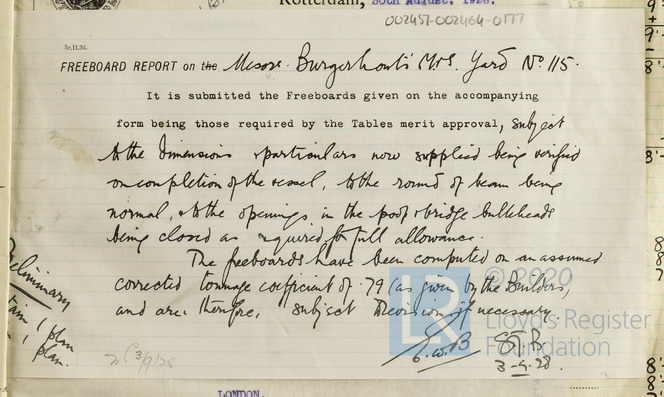 Rotterdam, 30th August, 1928.
002457-002464-0177
5c.11.26.
FREEBOARD REPORT on the Messrs. Burgerhout's M/S. Yard No 115.
It is submitted the Freeboards given on the accompanying
form being those required by the Tables merit approval, subject
to the dimensions & particulars now supplied being verified
on completion of the vessel, to the round of beam being
normal, & to the openings in the poop & bridge bulkheads
being closed as required for full allowance.
The freeboards have been computed on an assumed
corrected tonnage coefficient of .79 (as given by the Builders,
and are, therefore, subject to revision if necessary.
Preliminary
1 plan
1 plan.
3/9/28
3-9-28.
© 2020
LR
Lloyd's Register
Foundation
LONDON.